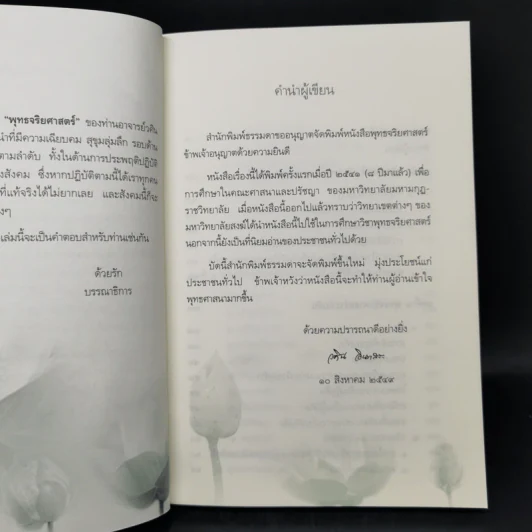 "พุทธจริยศาสตร์" ของท่านอาจารย์วศิน
ที่มีความเฉียบคม สุขุมลุ่มลึก รอบด้าน
ตามลำดับ ทั้งในด้านการประพฤติปฏิบัติ
สังคม ซึ่งหากปฏิบัติตามนี้ได้เราทุกคน
ที่แท้จริงได้ไม่ยากเลย และสังคมนี้ก็จะ
เล่มนี้จะเป็นคำตอบสำหรับท่านเช่นกัน
ด้วยรัก
บรรณาธิการ
คำนำผู้เขียน
สำนักพิมพ์ธรรมดาขออนุญาตจัดพิมพ์หนังสือพุทธจริยศาสตร์
ข้าพเจ้าอนุญาตด้วยความยินดี
หนังสือเรื่องนี้ได้พิมพ์ครั้งแรกเมื่อปี ๒๕๔๑ (๘ ปีมาแล้ว) เพื่อ
การศึกษาในคณะศาสนาและปรัชญา ของมหาวิทยาลัยมหามกุฏ-
ราชวิทยาลัย เมื่อหนังสือนี้ออกไปแล้วทราบว่าวิทยาเขตต่างๆ ของ
มหาวิทยาลัยสงฆ์ได้นำหนังสือนี้ไปใช้ในการศึกษาวิชาพุทธจริยศาสตร์
นอกจากนี้ยังเป็นที่นิยมอ่านของประชาชนทั่วไปด้วย
บัดนี้สำนักพิมพ์ธรรมดาจะจัดพิมพ์ขึ้นใหม่ มุ่งประโยชน์แก่
ประชาชนทั่วไป ข้าพเจ้าหวังว่าหนังสือนี้จะทำให้ท่านผู้อ่านเข้าใจ
พุทธศาสนามากขึ้น
ด้วยความปรารถนาดีอย่างยิ่ง
วศิน อินทสระ
๑๐ สิงหาคม ๒๕๔๙